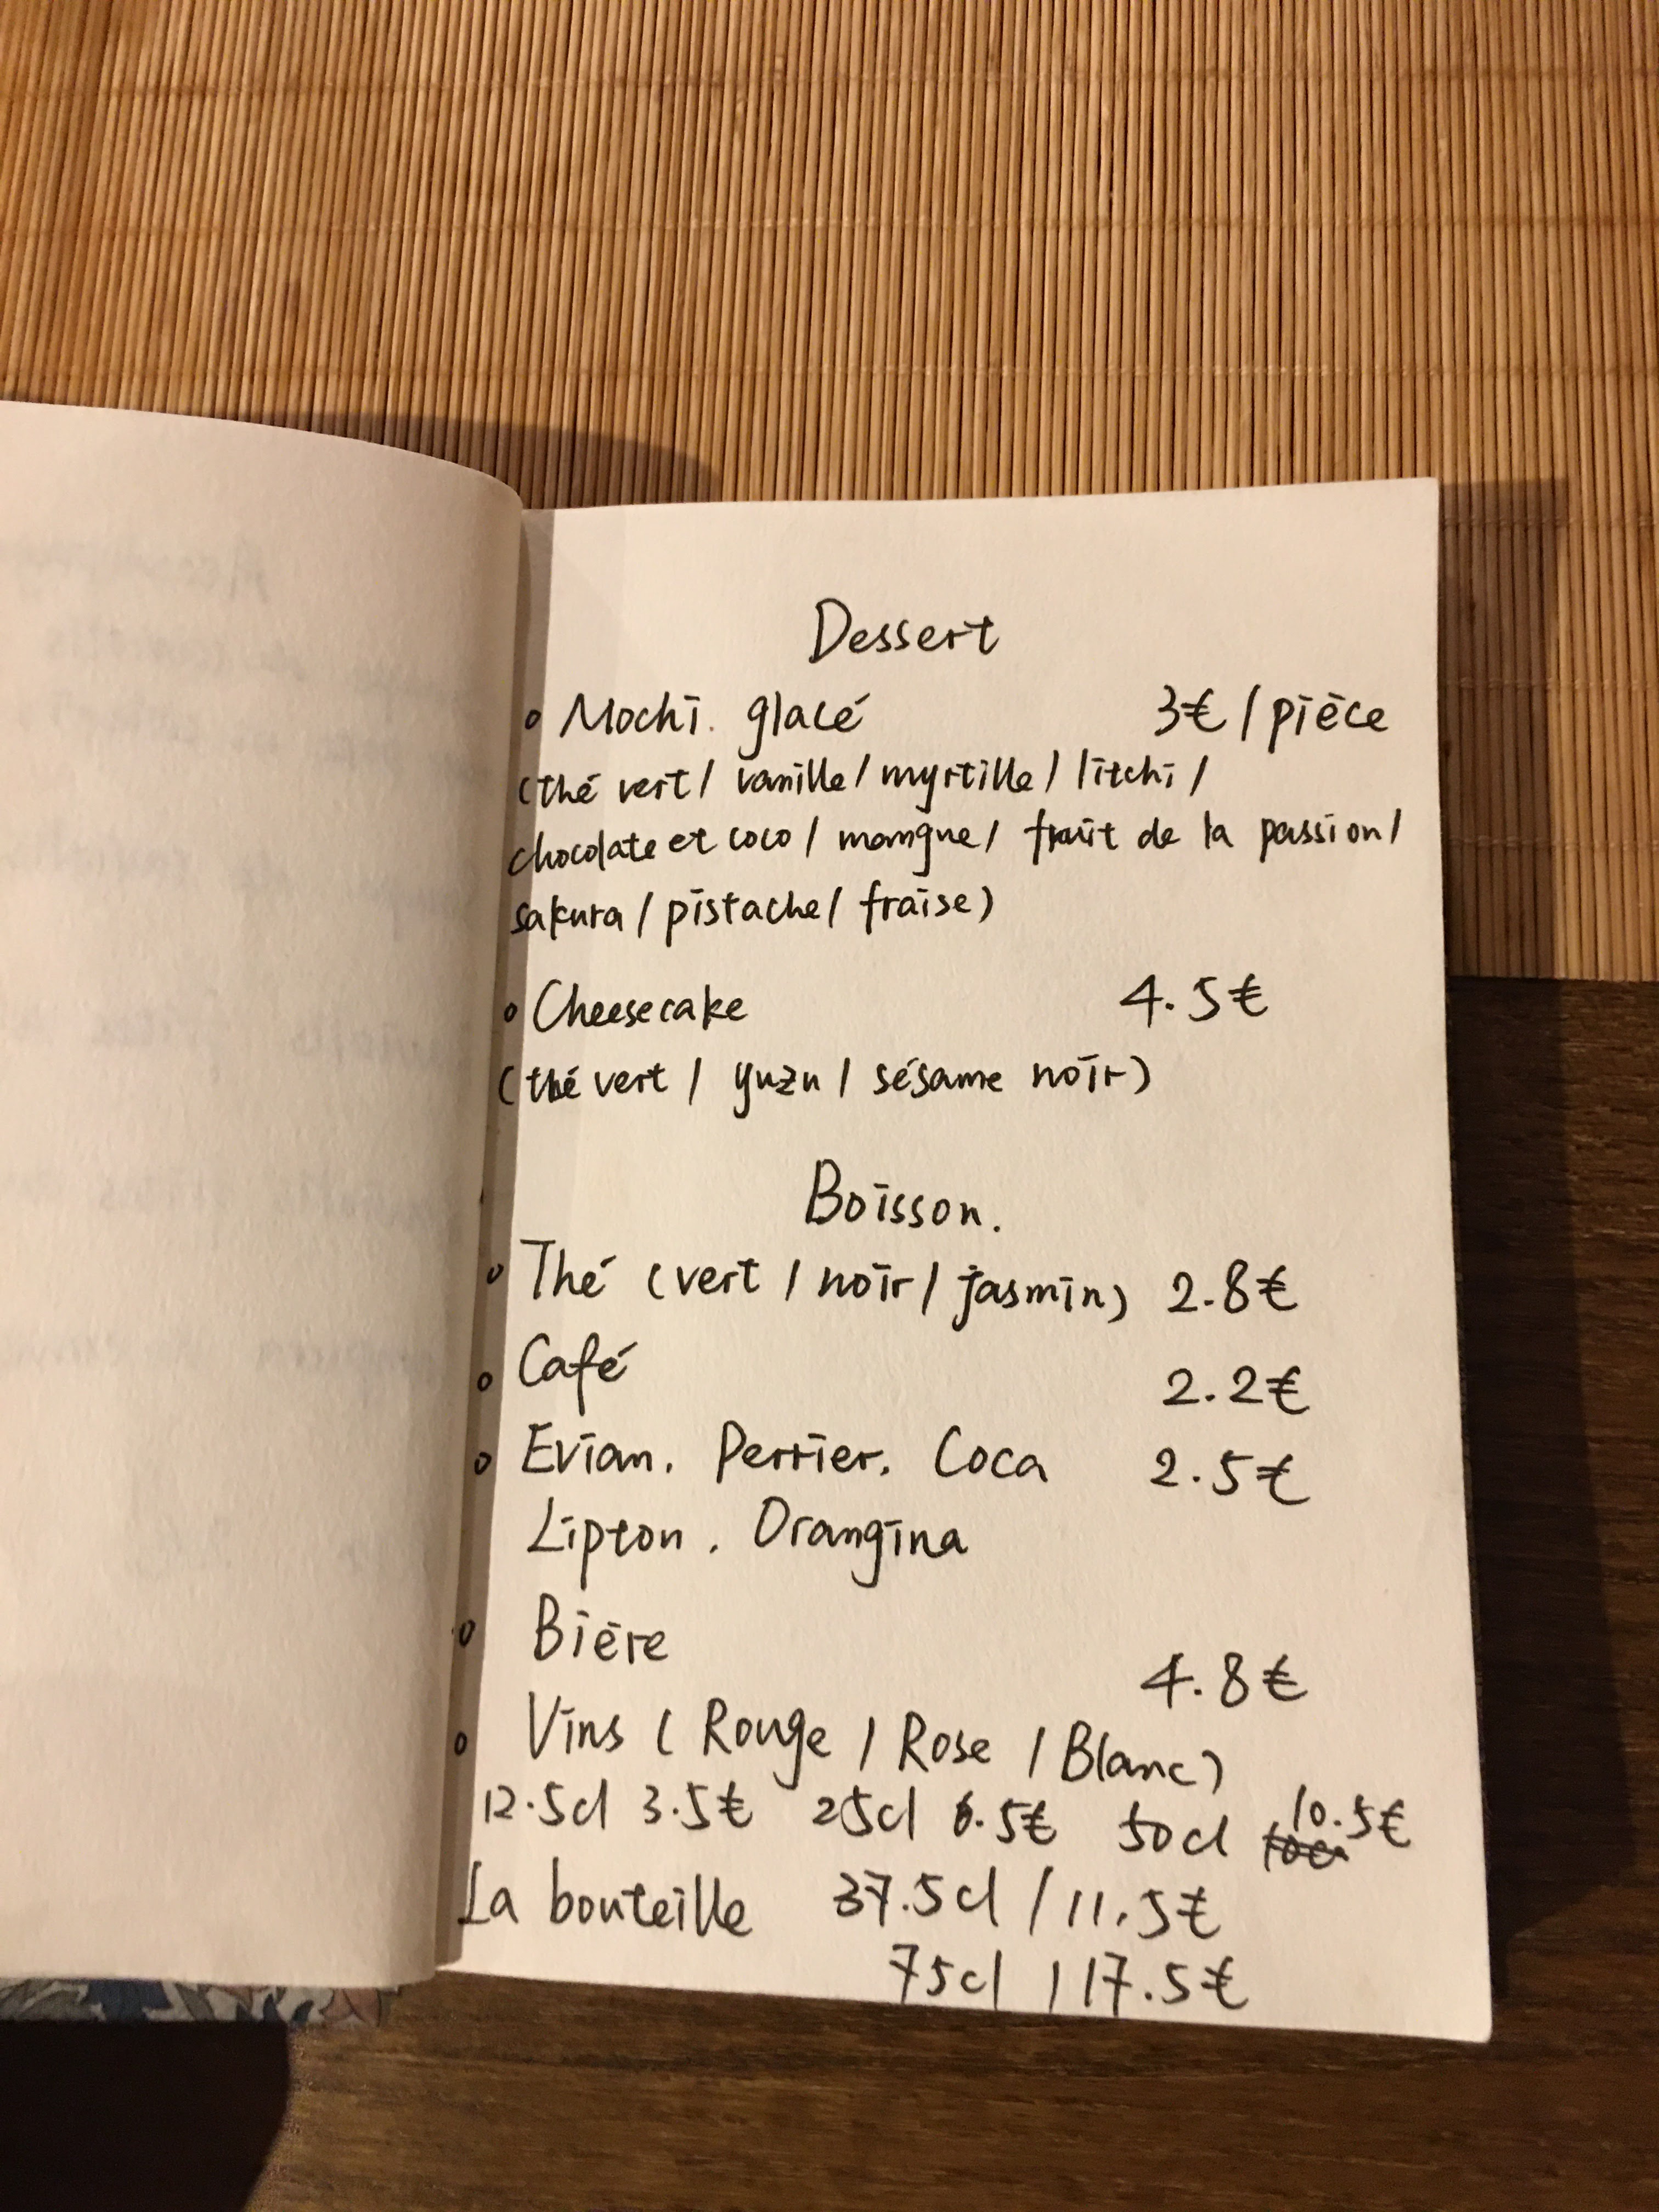 Dessert
Mochi. glacé 3€ / pièce
(thé vert / vanille / myrtille / litchi /
chocolate et coco / mangue / fruit de la passion /
sakura / pistache / fraise)
Cheesecake 4.5€
(thé vert / yuzu / sésame noir)
Boisson.
Thé (vert / noir / jasmin) 2.8€
Café 2.2€
Evian. Perrier. Coca 2.5€
Lipton. Orangina
Bière 4.8€
Vins (Rouge / Rose / Blanc)
12.5cl 3.5€ 25cl 6.5€ 50cl 10.5€
La bouteille 37.5cl / 11.5€
75cl / 17.5€